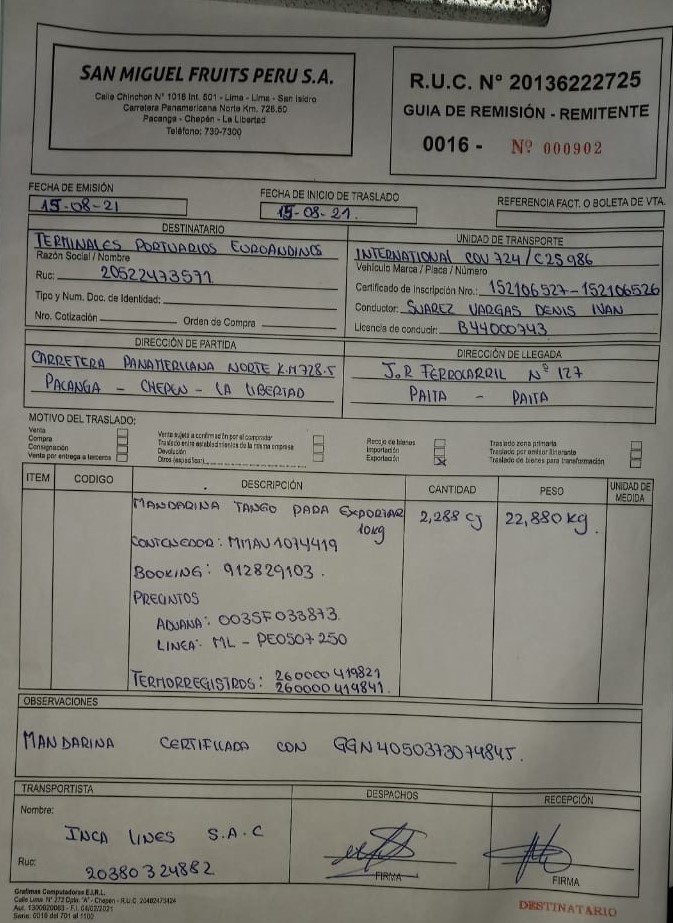 SAN MIGUEL FRUITS PERU S.A.
Calle Chinchon N° 1018 Int. 601 - Lima - Lima - San Isidro
Carretera Panamericana Norte Km. 728.50
Pacanga - Chepén - La Libertad
Teléfono: 730-7300
R.U.C. N° 20136222725
GUIA DE REMISIÓN - REMITENTE
0016 - Nº 000902
FECHA DE EMISIÓN
15-08-21
FECHA DE INICIO DE TRASLADO
15-08-21.
REFERENCIA FACT. O BOLETA DE VTA.
DESTINATARIO
TERMINALES PORTUARIOS EUROANDINOS
Razón Social / Nombre
Ruc: 20522473571
Tipo y Num. Doc. de Identidad:
Nro. Cotización Orden de Compra
UNIDAD DE TRANSPORTE
INTERNATIONAL COV 724/C2S986
Vehículo Marca / Placa / Número
Certificado de Inscripción Nro.: 152106527-152106526
Conductor: SUAREZ VARGAS DENIS IVAN
Licencia de conducir: B44000743
DIRECCIÓN DE PARTIDA
CARRETERA PANAMERICANA NORTE K.M 728.5
PACANGA - CHEPEN - LA LIBERTAD
DIRECCIÓN DE LLEGADA
J.R FERROCARRIL Nº 127
PAITA - PAITA
MOTIVO DEL TRASLADO:
Venta
Compra
Consignación
Venta por entrega a terceros
Venta sujeta a confirmación por el comprador
Traslado entre establecimientos de la misma empresa
Devolución
Otros (especificar)
Recojo de bienes
Importación
Exportación X
Traslado zona primaria
Traslado por emisor itinerante
Traslado de bienes para transformación
ITEM CODIGO DESCRIPCIÓN CANTIDAD PESO UNIDAD DE MEDIDA
MANDARINA TANGO PADA EXPORTAR 2,288 CJ 22,880 kg.
10kg
CONTENEDOR: MMAU1074419
BOOKING: 912829103.
PRECINTOS
ADUANA: 0035F033873.
LINEA: ML - PE0507250
TERMORREGISTROS: 260000419821
260000419841.
OBSERVACIONES
MANDARINA CERTIFICADA CON GGN4050373074845.
TRANSPORTISTA
Nombre:
INCA LINES S.A.C
Ruc: 20380324882
DESPACHOS
FIRMA
RECEPCIÓN
FIRMA
Grafimas Computadoras E.I.R.L.
Calle Lima N° 272 Dpto. "A" - Chepen - R.U.C. 20482473424
Serie: 0016 del 701 al 1100
DESTINATARIO